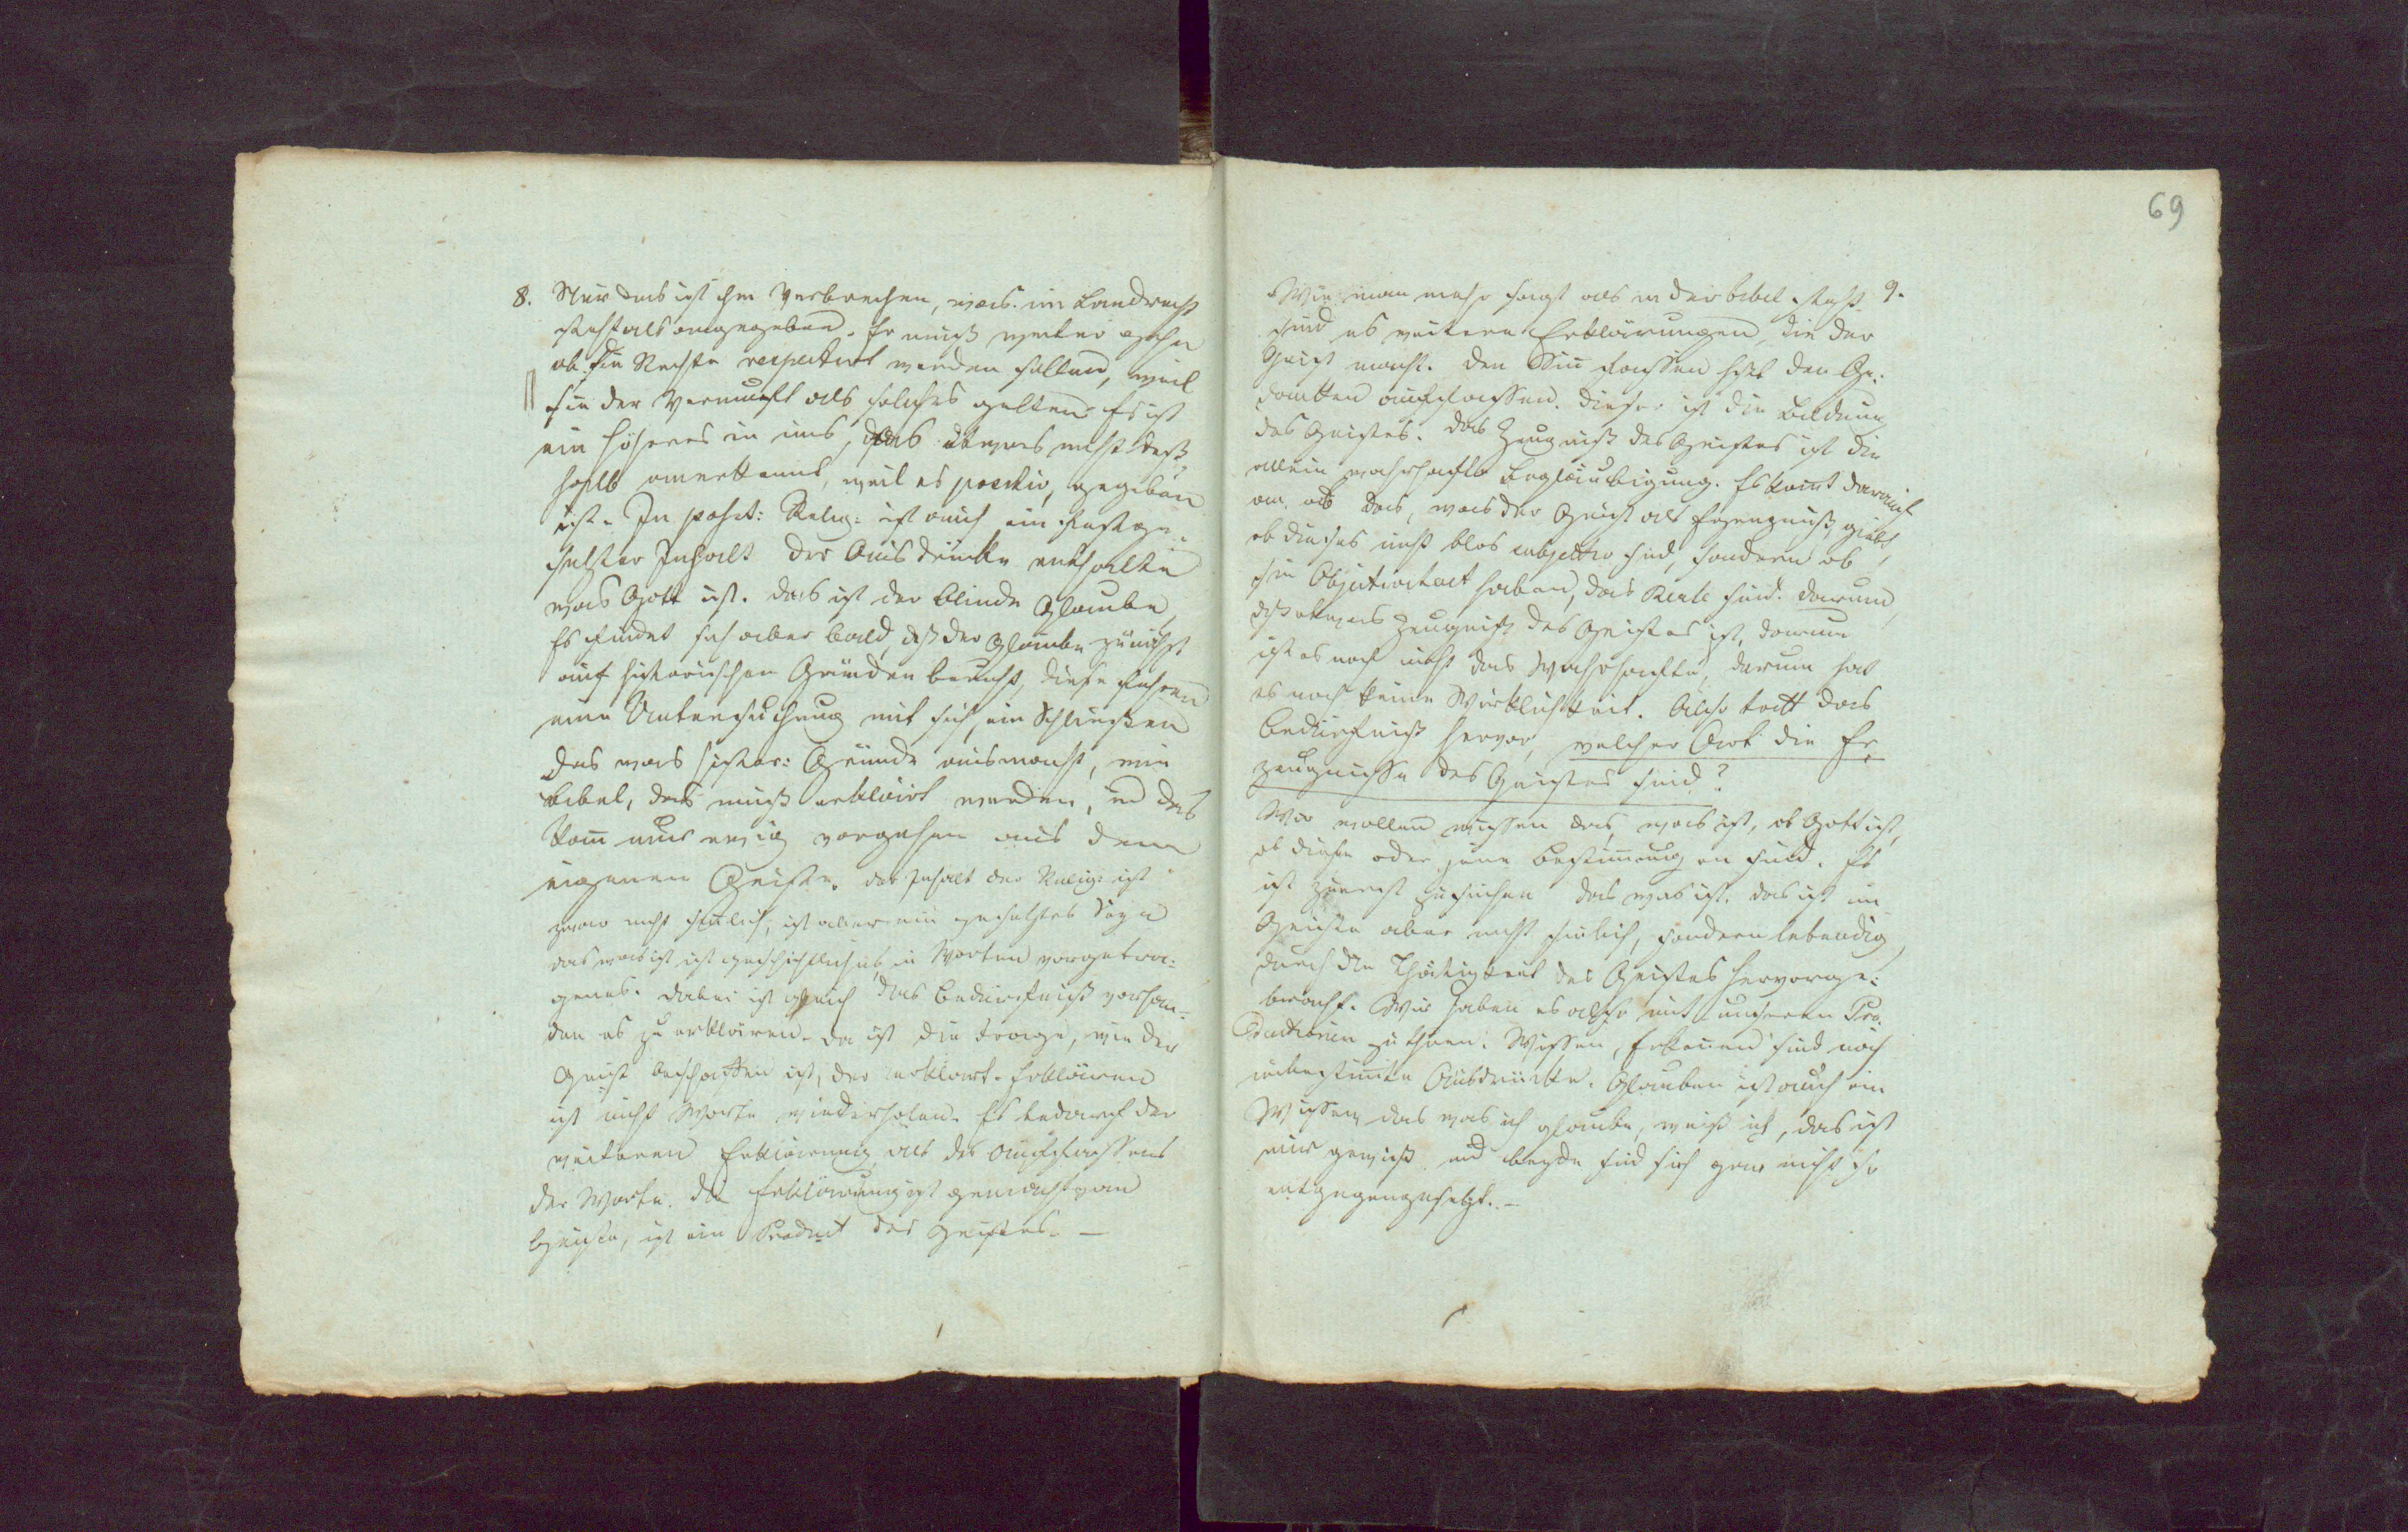 8. Nur das ist ihm Verbrechen, was im Landrecht
steht als angegeben. Er muß weiter gehn
ob die Rechte respectirt werden sollen, weil
sie der Vernunft als solches gelten. Es ist
ein Höheres in uns, das etwas nicht deß¬
halb anerkennt, weil es positiv, gegeben
ist. In posit: Relig: ist auch ein festge¬
setzter Inhalt der Ausdrücke enthalte
was Gott ist. das ist der blinde Glaube
Es findet sich aber bald, dß der Glaube zunächst
auf historischen Gründen beruht, diese führen
eine Untersuchung mit sich, ein Schließen
das was histor: Gründe ausmacht, wie
Bibel, das muß erklärt werden, und das
kann nur ewig vorgehen aus dem
eigenen Geiste. der Inhalt der Relig: ist
zwar nicht sinnlich, ist aber ein gesetztes Seyn
das was ist ist geschichtliches, in Worten vorgetra¬
genes. dabei ist gleich das Bedürfniß vorhan¬
den es zu erklären. da ist die Frage, wie der
Geist beschaffen ist, der erklärt. Erklären
ist nicht Worte wiederholen. Es bedarf der
weiteren Erklärung als des Auffassens
der Worte. die Erklärung ist gemacht vom
Geiste, ist ein Product des Geistes. —
69
Wie man mehr sagt als in der bibel steht 9.
sind es weitere Erklärungen, die der
Geist macht. den Sinn fassen heißt den Ge¬
danken auffassen. dieser ist die Bildung
des Geistes. das Zeugniß des Geistes ist die
allein wahrhafte Beglaubigung. Es komt darauf
an, ob das, was der Geist als Erzeugniß giebt,
ob dieses nicht blos subjectiv sind, sondern ob
sie Objectivitaet haben, das Reale sind. Darum,
dß etwas Zeugniß des Geistes ist, darum
ist es noch nicht das Wahrhafte, darum hat
es noch keine Wirklichkeit. Also tritt das
Bedürfniß hervor, welcher Art die Er¬
zeugnisse des Geistes sind?
Wir wollen wissen das, was ist, ob Gott ist,
ob diese oder jene Bestimmungen sind. Es
ist zuerst zu suchen das was ist. das ist im
Geiste aber nicht sinnlich, sondern lebendig
durch die Thätigkeit des Geistes hervorge¬
bracht. Wir haben es also mit unseren Pro¬
ductionen zu thun. Wissen, Erkennen sind noch
unbestimte Ausdrücke. Glauben ist auch ein
Wissen, das was ich glaube, weiß ich, das ist
mir gewiß, und beyde sind sich gar nicht so
entgegengesetzt. —